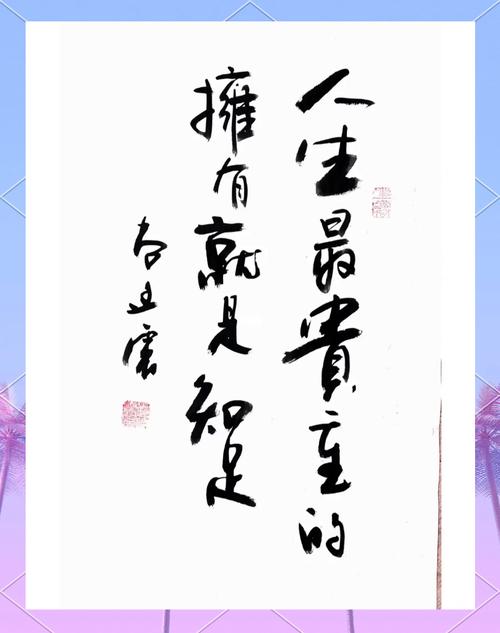 人生最貴重的
擁有就是知足